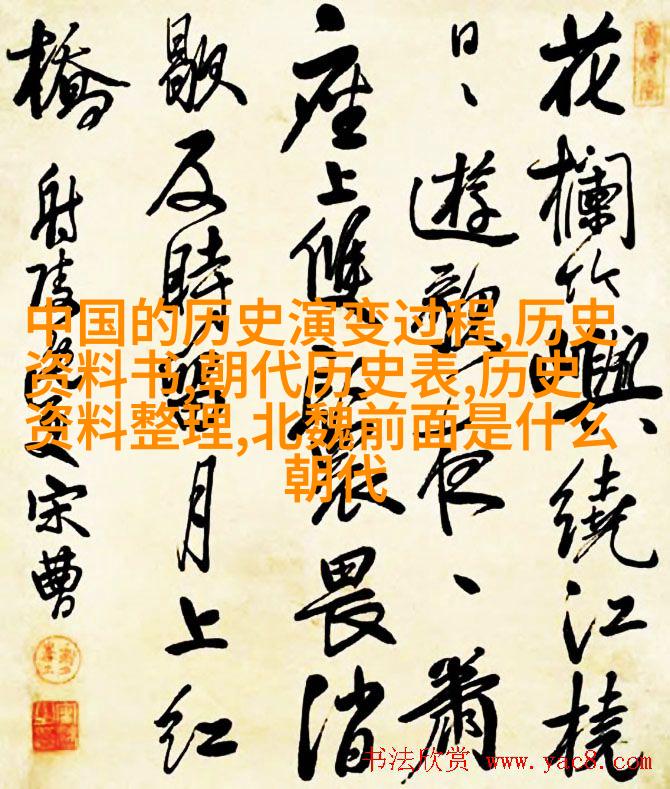 花欄竹嶼繞江橈
日、遊歌夜、蕭
座上畏消
歇反時明月上紅
橋
射陵逸叟宋曹
中国的历史演变过程,历史
资料书,朝代历史表,历史
资料整理,北魏前面是什么
朝代
书法欣赏 www.yac8.com